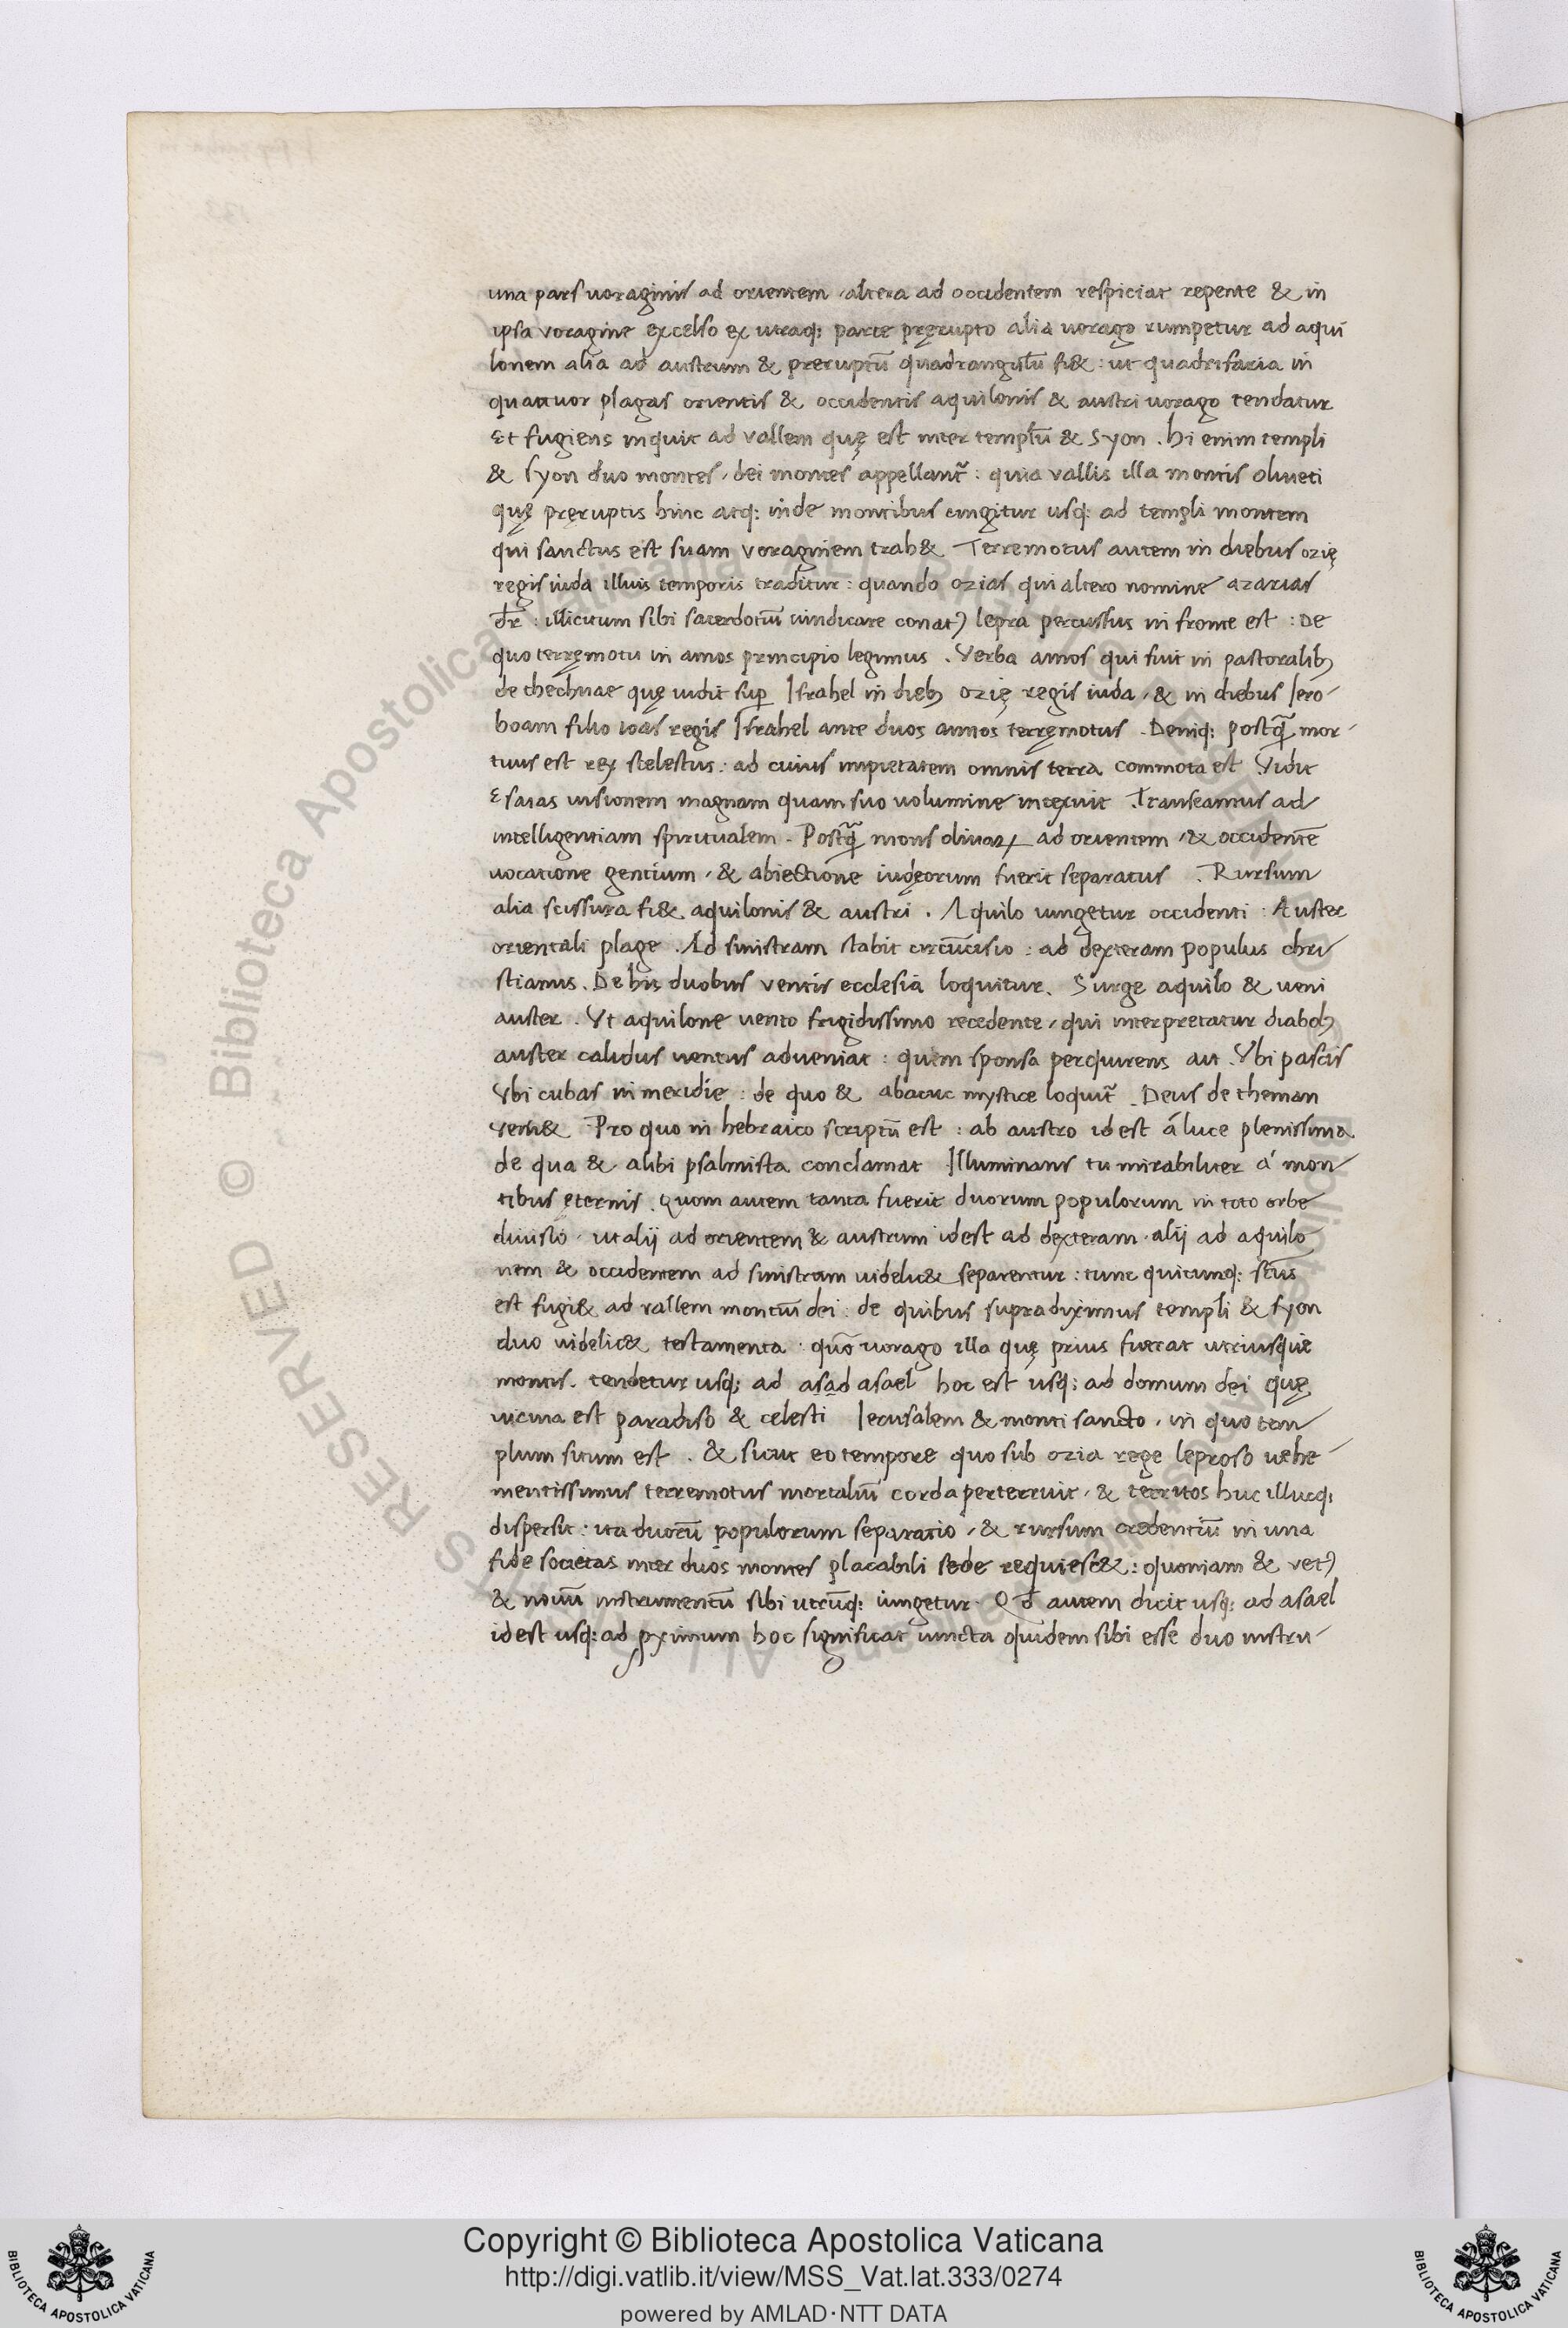 una pars uoraginis ad orientem, altera ad occidentem respiciat repente & in
ipsa voragine excelso ex utraq; parte pręrupto alia uorago rumpetur ad aqui
lonem alia ad austrum & preruptū quadrangulū fi&: ut quadrifaria in
quattuor plagas orientis & occidentis aquilonis & austri uorago tendatur
Et fugiens inquit ad vallem quę est inter templū & Syon. hi enim templi
& syon duo montes, dei montes appellant᷑: quia vallis illa montis oliueti
quę pręruptis hinc atq; inde montibus cingitur usq; ad templi montem
qui sanctus est suam voraginem trah& Terremotus autem in diebus ozię
regis iuda illius temporis traditur: quando ozias qui altero nomine azarias
dr̄: illicitum sibi sacerdotiū uindicare conat᷑ lepra percussus in fronte est: De
quo terręmotu in amos principio legimus. Verba amos qui fuit in pastoralibꝫ
de thechuae quę uidit sup̄ Israhel in diebꝫ ozię regis iuda, & in diebus Iero-
boam filio ioas regis Israhel ante duos annos terręmotus. Deniq; postq̄ mor-
tuus est rex scelestus: ad cuius impietatem omnis terra commota est Vidit
Esaias uisionem magnam quam suo uolumine intexuit. Transeamus ad
intelligentiam spiritualem. Postq̄ mons oliuaꝝ ad orientem, & occidentē
uocatione gentium, & abiectione iudęorum fuerit separatus. Rursum
alia scissura fi& aquilonis & austri. Aquilo iungetur occidenti: Auster
orientali plage. Ad sinistram stabit circūcisio: ad dexteram populus chri
stianus. De his duobus ventis ecclesia loquitur. Surge aquilo & ueni
auster. Vt aquilone uento frigidissimo recedente, qui interpretatur diabolꝫ
auster calidus uentus adueniat: quem sponsa perquirens ait. Vbi pascis
Vbi cubas in meridie: de quo & abacuc mystice loquit᷑. Deus de theman
veni& Pro quo in hebraico scriptū est: ab austro id est á luce plenissima.
de qua & alibi psalmista conclamat Illuminans tu mirabiliter á mon
tibus ęternis. Quom autem tanta fuerit duorum populorum in toto orbe
diuisio. ut alij ad orientem & austrum id est ad dexteram. alij ad aquilo
nem & occidentem ad sinistram uidelic& separentur: tunc quicunq; scūs
est fugi& ad vallem montiū dei: de quibus supra diximus templi & syon
duo uidelic& testamenta. quō uorago illa quę prius fuerat utriusque
montis. tendetur usq; ad asad asael hoc est usq; ad domum dei quę
uicina est paradiso & celesti Ierusalem & monti sancto, in quo tem
plum situm est. & sicut eo tempore quo sub ozia rege leproso uehe-
mentissimus terremotus mortaliū corda perterruit, & territos huc illucq;
dispersit: ita duorū populorum separatio, & rursum credentiū in una
fide societas inter duos montes placabili sede requiesc&: quoniam & vet᷑
& nouū instrumentū sibi utrūq; iungetur. Qd̄ autem dicit usq; ad asael
id est usq; ad ꝓximum hoc significat iuncta quidem sibi esse duo instru-
Copyright © Biblioteca Apostolica Vaticana
http://digi.vatlib.it/view/MSS_Vat.lat.333/0274
powered by AMLAD·NTT DATA
BIBLIOTECA APOSTOLICA VATICANA
BIBLIOTECA APOSTOLICA VATICANA